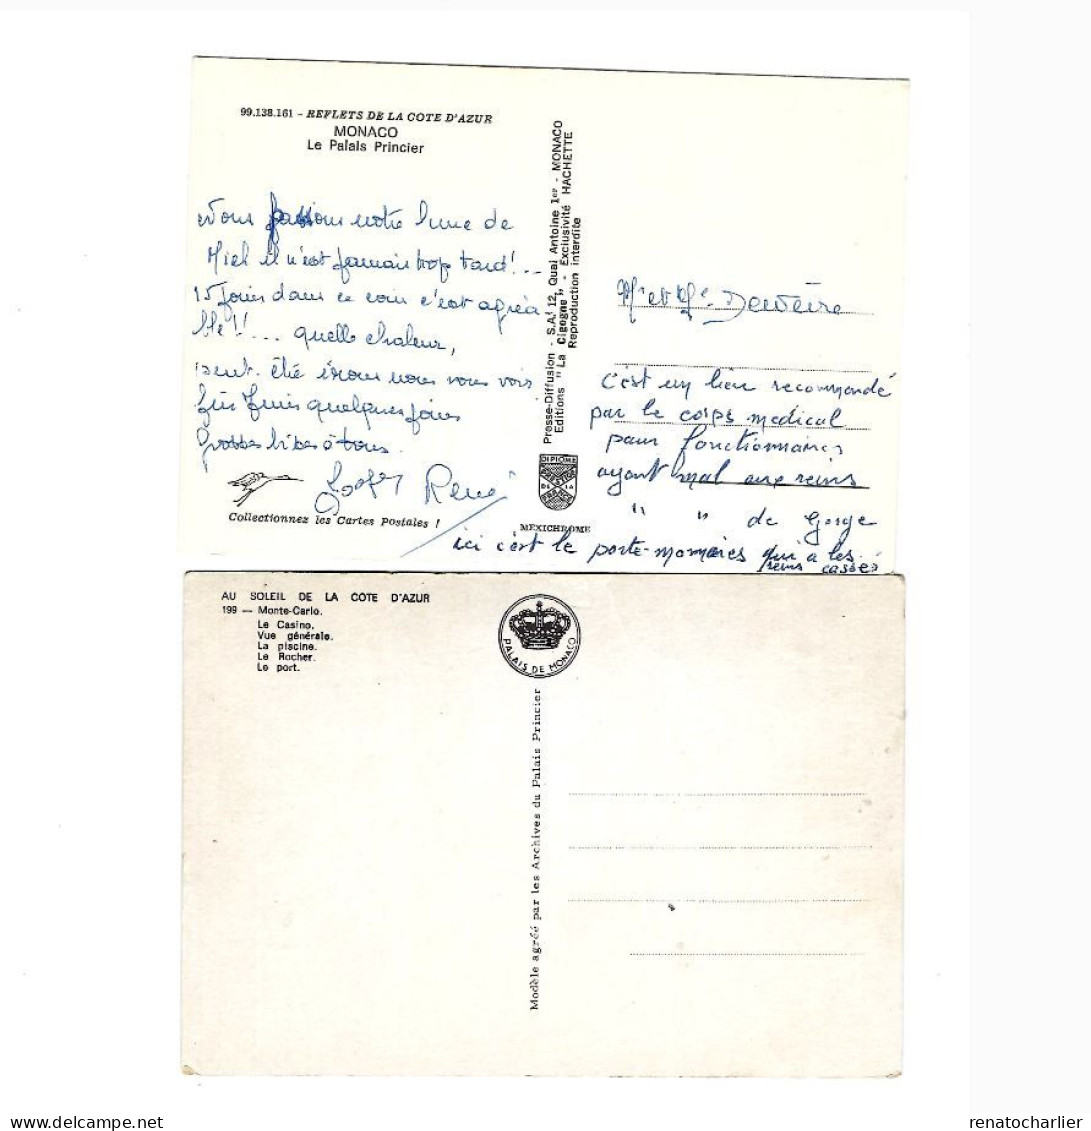 99.138.161 - REFLETS DE LA COTE D'AZUR
MONACO
Le Palais Princier
Nous passons notre lune de
Miel il n'est jamais trop tard!...
15 jours dans ce coin c'est agréa-
ble!!... quelle chaleur,
peut-être irons nous vous voir
fin Juin quelques jours
Grosses bises à tous.
René
Collectionnez les Cartes Postales !
Presse-Diffusion - S.A. 12, Quai Antoine 1er - MONACO
Editions "La Cigogne" - Exclusivité HACHETTE
Reproduction interdite
DIPLOME
PRESTIGE
DE LA
FRANCE
MEXICHROME
Mr et Me
C'est un lieu recommandé
par le corps medical
pour fonctionnaires
ayant mal aux reins
" " de gorge
ici c'est le porte-monnaies qui a les
reins cassés
AU SOLEIL DE LA COTE D'AZUR
199 — Monte-Carlo.
Le Casino.
Vue générale.
La piscine.
Le Rocher.
Le port.
PALAIS DE MONACO
Modèle agréé par les Archives du Palais Princier
renatocharlier